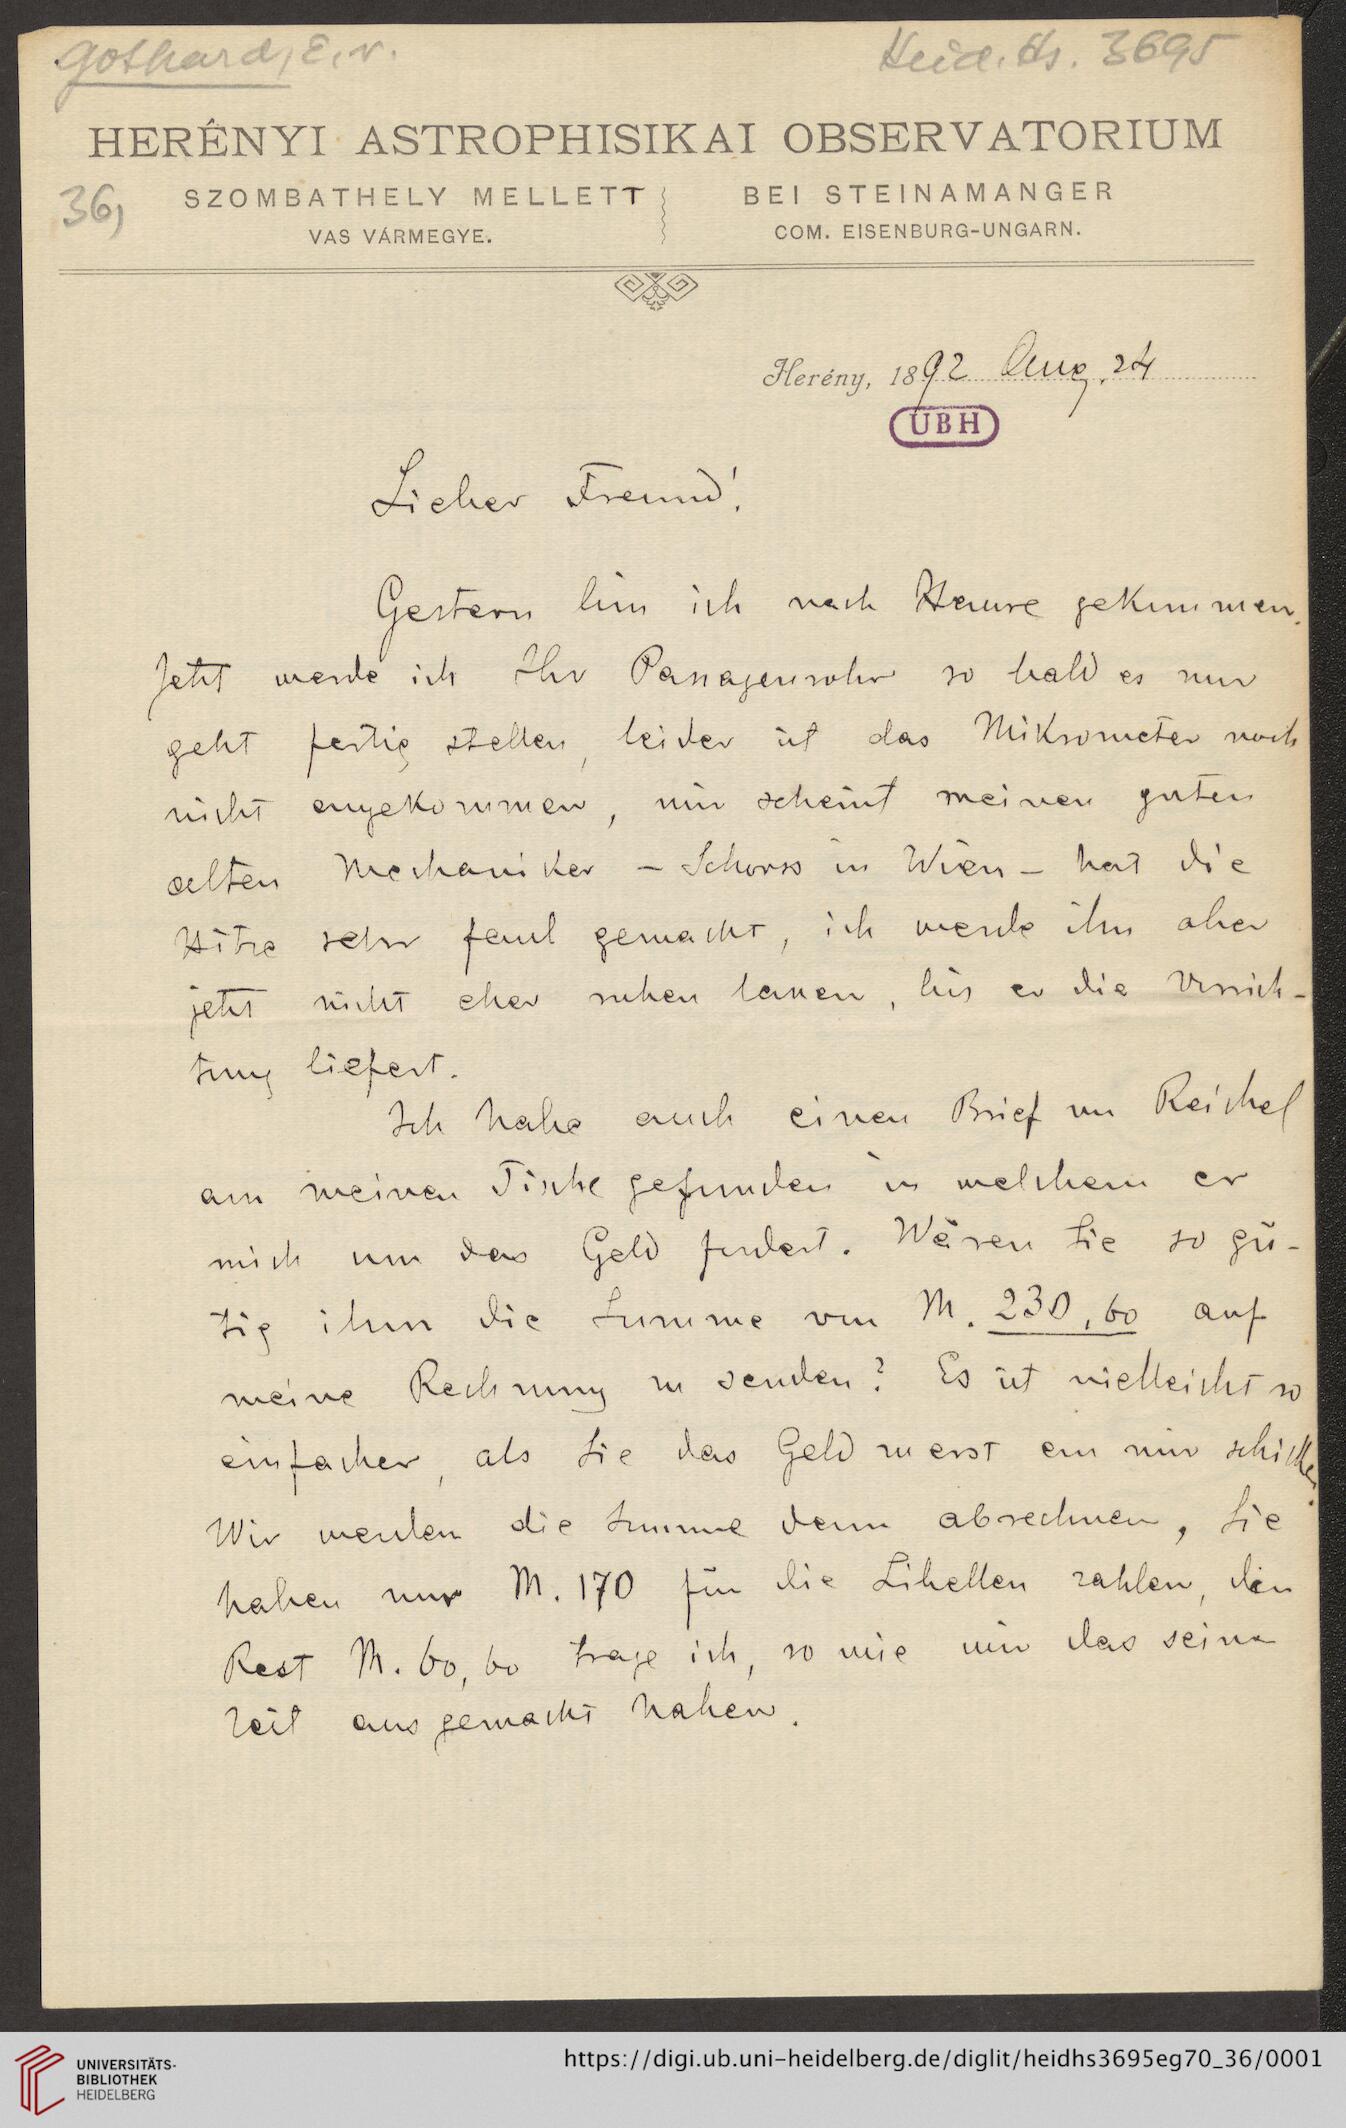 Gothard, E. v.
Heid. Hs. 3695
HERÉNYI ASTROPHISIKAI OBSERVATORIUM
36,
SZOMBATHELY MELLETT
VAS VÁRMEGYE.
BEI STEINAMANGER
COM. EISENBURG-UNGARN.
Herény, 1892 Aug. 24
UBH
Lieber Freund!
Gestern bin ich nach Hause gekommen.
Jetzt werde ich Ihr Passagenrohr so bald es nur
geht fertig stellen, leider ist das Mikrometer noch
nicht angekommen, mir scheint meinen guten
alten Mechaniker – Schorss in Wien – hat die
Hitze sehr faul gemacht, ich werde ihn aber
jetzt nicht eher ruhen lassen, bis er die Vorrich-
tung liefert.
Ich habe auch einen Brief von Reichel
am meinen Tische gefunden in welchem er
mich um das Geld fordert. Wären Sie so gü-
tig ihm die Summe von M. 230,60 auf
meine Rechnung zu senden? Es ist vielleicht so
einfacher, als Sie das Geld zuerst an mir schicken.
Wir werden die Summe dann abrechnen, Sie
haben nur M. 170 für die Libellen zahlen, den
Rest M. 60,60 trage ich, so wie wir das seine
Zeit ausgemacht haben.
UNIVERSITÄTS-
BIBLIOTHEK
HEIDELBERG
https://digi.ub.uni-heidelberg.de/diglit/heidhs3695eg70_36/0001